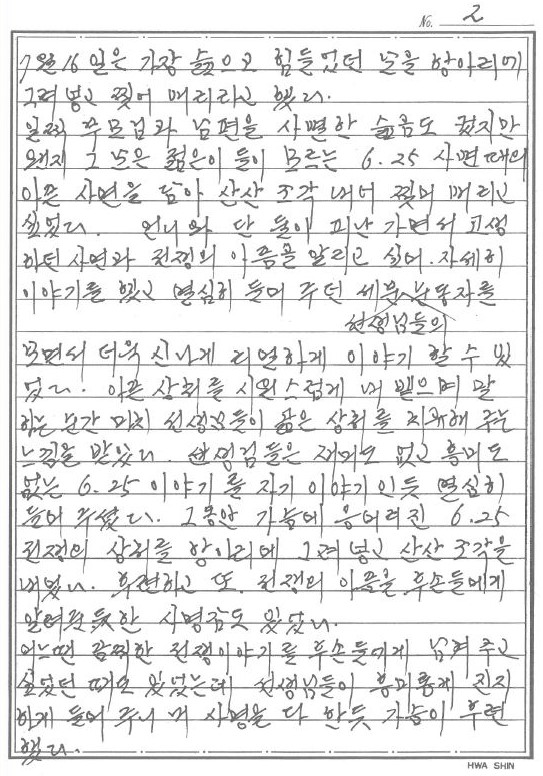 No. 2
7월 16일은 가장 슬으고 힘들었던 날을 항아리에
그려 넣고 찢어 때리라고 했다.
일찍 부모님과 남편을 사별한 슬픔도 컸지만
왠지 그 날은 젊은이들이 모르는 6.25 사변 때의
아픈 사연을 담아 산산 조각 내어 찢어 때리고
싶었다. 언니와 단 둘이 피난 가면서 고생
하던 사연과 전쟁의 아픔을 알리고 싶어. 자세히
이야기를 했고 열심히 들어 주던 세분 눈동자를
선생님들의
보면서 더욱 신나게 리얼하게 이야기 할 수 있
었다. 아픈 상처를 시원스럽게 내 뱉으며 말
하는 순간 마치 선생님들이 곪은 상처를 치료해 주는
느낌을 받았다. 선생님들은 재미도 없고 흥미도
없는 6.25 이야기를 자기 이야기인듯 열심히
들어 주셨다. 그동안 가슴에 응어리진 6.25
전쟁의 상처를 항아리에 그려 넣고 산산 조각을
내었다. 후련하고 또 전쟁의 아픔을 후손들에게
알려 한 사명감도 있었다.
어느땐 끔찍한 전쟁이야기를 후손들에게 남겨 주고
싶었던 때도 있었는데 선생님들이 흥미롭게 진지
하게 들어 주니 내 사명을 다 한듯 가슴이 후련
했다.
HWA SHIN